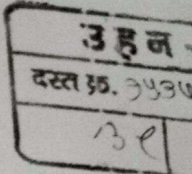 उहन
दस्त क्र. ३५३७
३९